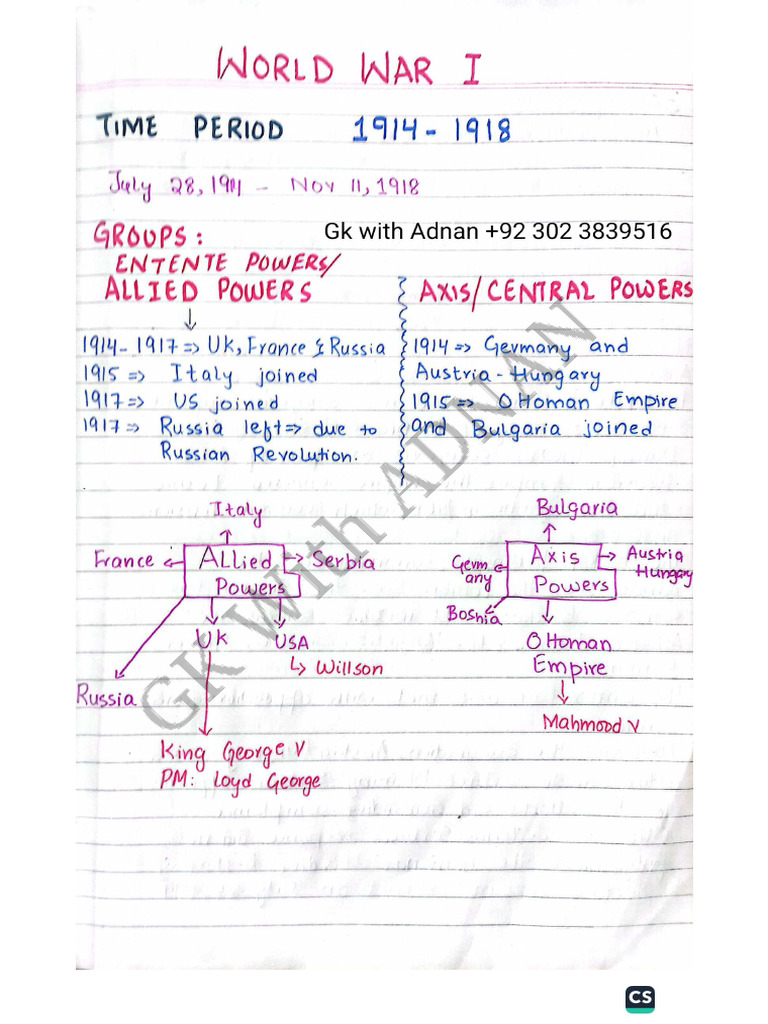 WORLD WAR I
TIME PERIOD 1914 - 1918
July 28, 1914 - Nov 11, 1918
Gk with Adnan +92 302 3839516
GROUPS:
ENTENTE POWERS/
ALLIED POWERS
1914 - 1917 => UK, France & Russia
1915 => Italy joined
1917 => US joined
1917 => Russia left => due to
Russian Revolution.
AXIS/CENTRAL POWERS
1914 => Germany and
Austria - Hungary
1915 => Ottoman Empire
and Bulgaria joined
Italy
France
Allied
Powers
Serbia
UK
USA
Willson
Russia
King George V
PM: Loyd George
Bulgaria
Germ
any
Axis
Powers
Austria
Hungary
Bosnia
Ottoman
Empire
Mahmood V
GK With ADNAN
CS